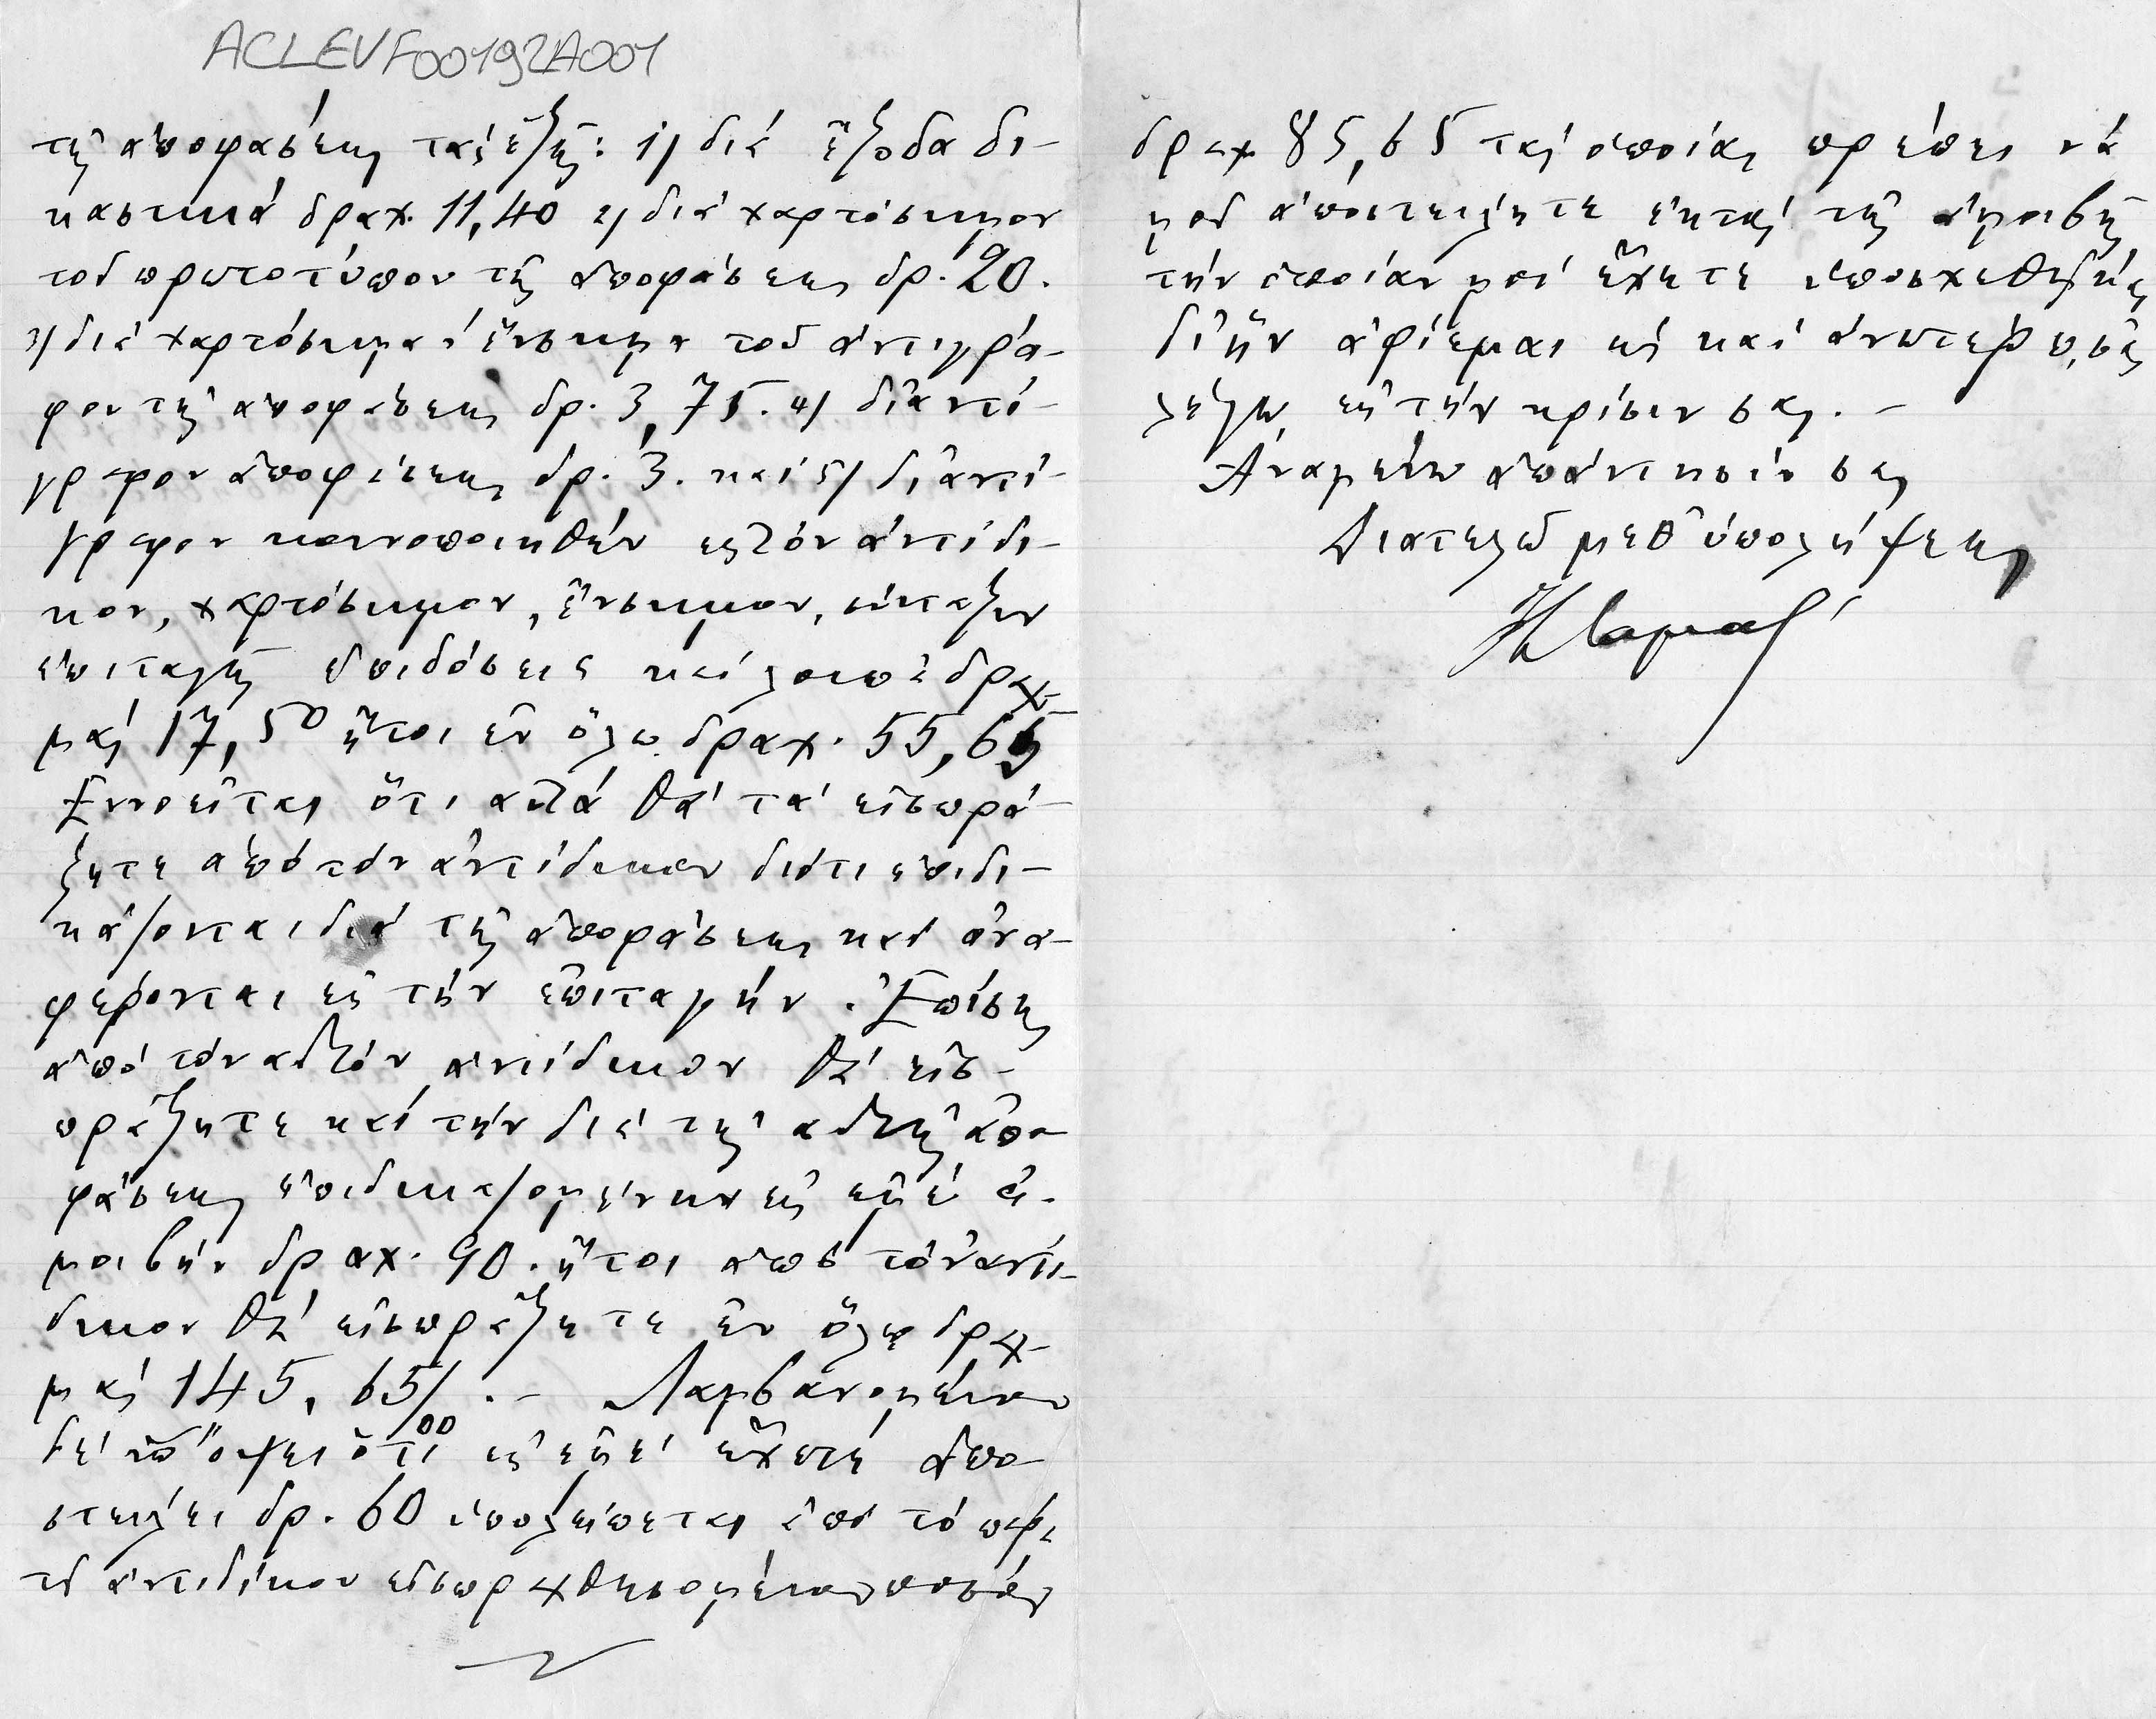 ACLEVF00192A001
τῆς ἀποφάσεως τὰς ἑξῆς: 1/ διὰ ἔξοδα δι-
καστικὰ δραχ. 11,40 2/ διὰ χαρτόσημον
τοῦ πρωτοτύπου τῆς ἀποφάσεως δρ. 20.
3/ διὰ χαρτόσημα ἔνσημα τοῦ ἀντιγρά-
φου τῆς ἀποφάσεως δρ. 3,75. 4/ δι' ἀντί-
γραφον ἀποφάσεως δρ. 3. καὶ 5/ δι' ἀντί-
γραφον κοινοποιηθὲν εἰς τὸν ἀντίδι-
κον, χαρτόσημον, ἔνσημον, σύνταξιν
ἐπιταγῆς ἐπιδόσεις καὶ λοιπὰ δραχ-
μὰς 17,50 ἤτοι ἐν ὅλῳ δραχ. 55,65
Ἐννοεῖται ὅτι αὐτὰ θὰ τὰ εἰσπρά-
ξητε ἀπὸ τὸν ἀντίδικον διότι ἐπιδι-
κάζονται διὰ τῆς ἀποφάσεως καὶ ἀνα-
φέρονται εἰς τὴν ἐπιταγήν. Ἐπίσης
ἀπὸ τὸν αὐτὸν ἀντίδικον θὰ εἰσ-
πράξητε καὶ τὴν διὰ τῆς αὐτῆς ἀπο-
φάσεως ἐπιδικαζομένην εἰς ἐμὲ ἀ-
μοιβὴν δραχ. 90. ἤτοι ἀπὸ τὸν ἀντί-
δικον θὰ εἰσπράξητε ἐν ὅλῳ δραχ-
μὰς 145,65/00 .- Λαμβανομένου
δὲ ὑπ' ὄψει ὅτι εἰς ἐμὲ ἔχετε ἀπο-
στείλει δρ. 60 ὑπολείπεται ἀπὸ τὸ παρὰ
τοῦ ἀντιδίκου εἰσπραχθησομένου ποσὸν
δραχ 85,65 τὰς ὁποίας πρέπει νὰ
μοῦ ἀποστείλητε ἐκτὸς τῆς ἀμοιβῆς
τὴν ὁποίαν μοὶ ἔχετε ὑποσχεθῆ καὶ
δι' ἣν ἀφίεμαι ὡς καὶ ἀνωτέρω σᾶς
λέγω, εἰς τὴν κρίσιν σας. -
Ἀναμένω ἀπάντησίν σας
Διατελῶ μεθ' ὑπολήψεως